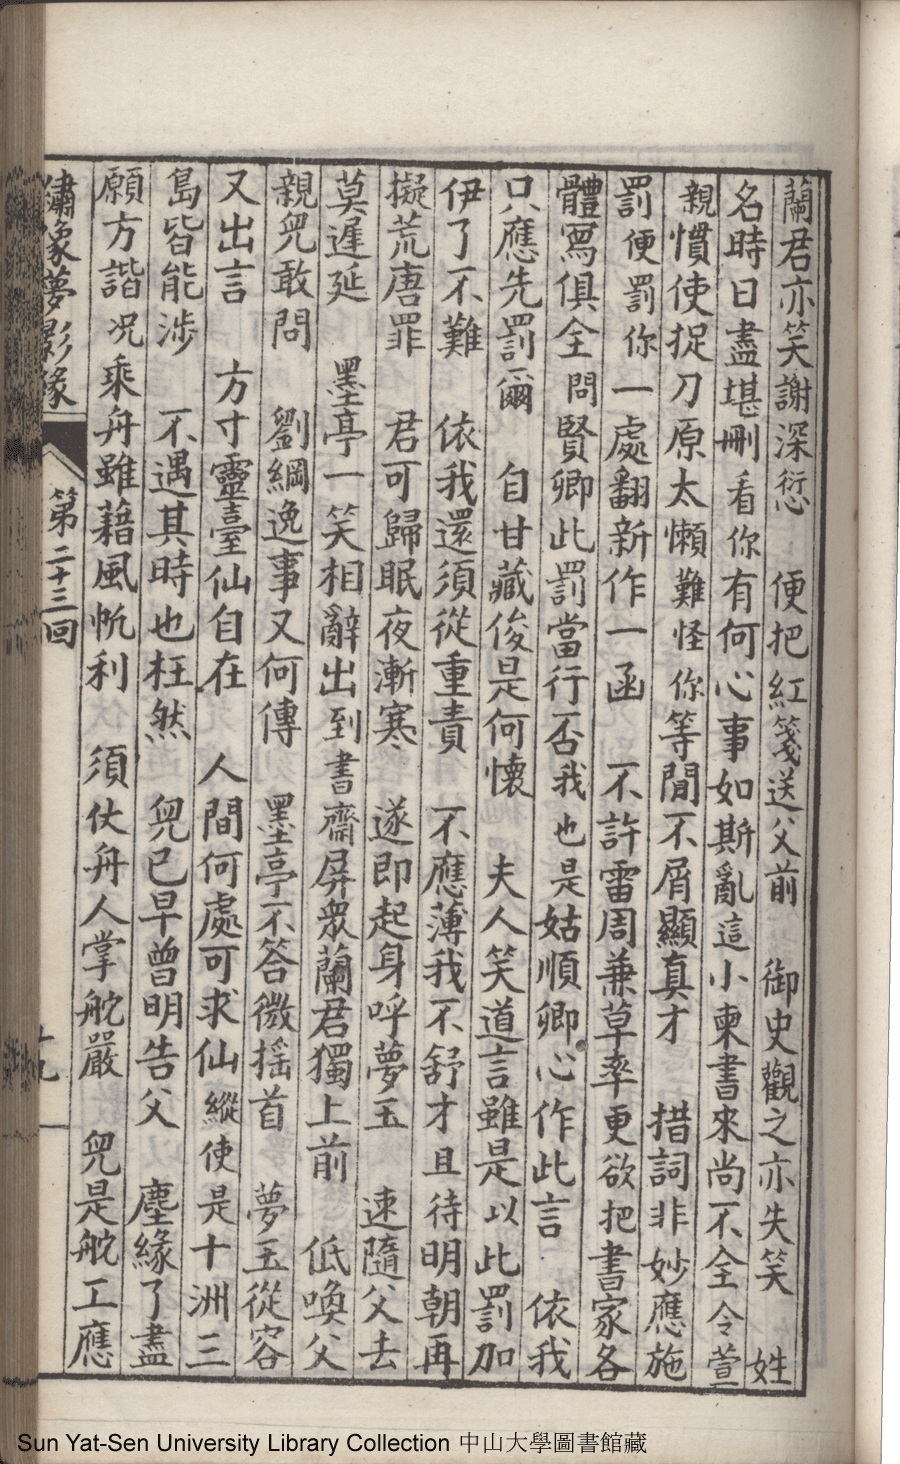 蘭君亦笑謝深愆　便把紅箋送父前　御史觀之亦失笑　姓
名時日盡堪刪看你有何心事如斯亂這小柬書來尚不全令萱
親慣使捉刀原太懶難怪你等閒不屑顯真才　措詞非妙應施
罰便罰你一處翻新作一函　不許雷周兼草率更欲把書家各
體寫俱全問賢卿此罰當行否我也是姑順卿心作此言　依我
只應先罰爾　自甘藏俊是何懷　夫人笑道言雖是以此罰加
伊了不難　依我還須從重責　不應薄我不舒才且待明朝再
擬荒唐罪　君可歸眠夜漸寒　遂即起身呼夢玉　速隨父去
莫遲延　墨亭一笑相辭出到書齋屏衆蘭君獨上前　低喚父
親兒敢問　劉綱逸事又何傳　墨亭不答微搖首　夢玉從容
又出言　方寸靈臺仙自在　人間何處可求仙縱使是十洲三
島皆能涉　不遇其時也枉然　兒已早曾明告父　塵緣了盡
願方諧况乘舟雖藉風帆利　須仗舟人掌舵嚴　兒是舵工應
繡像夢影緣　第二十三回　十九
Sun Yat-Sen University Library Collection 中山大學圖書館藏